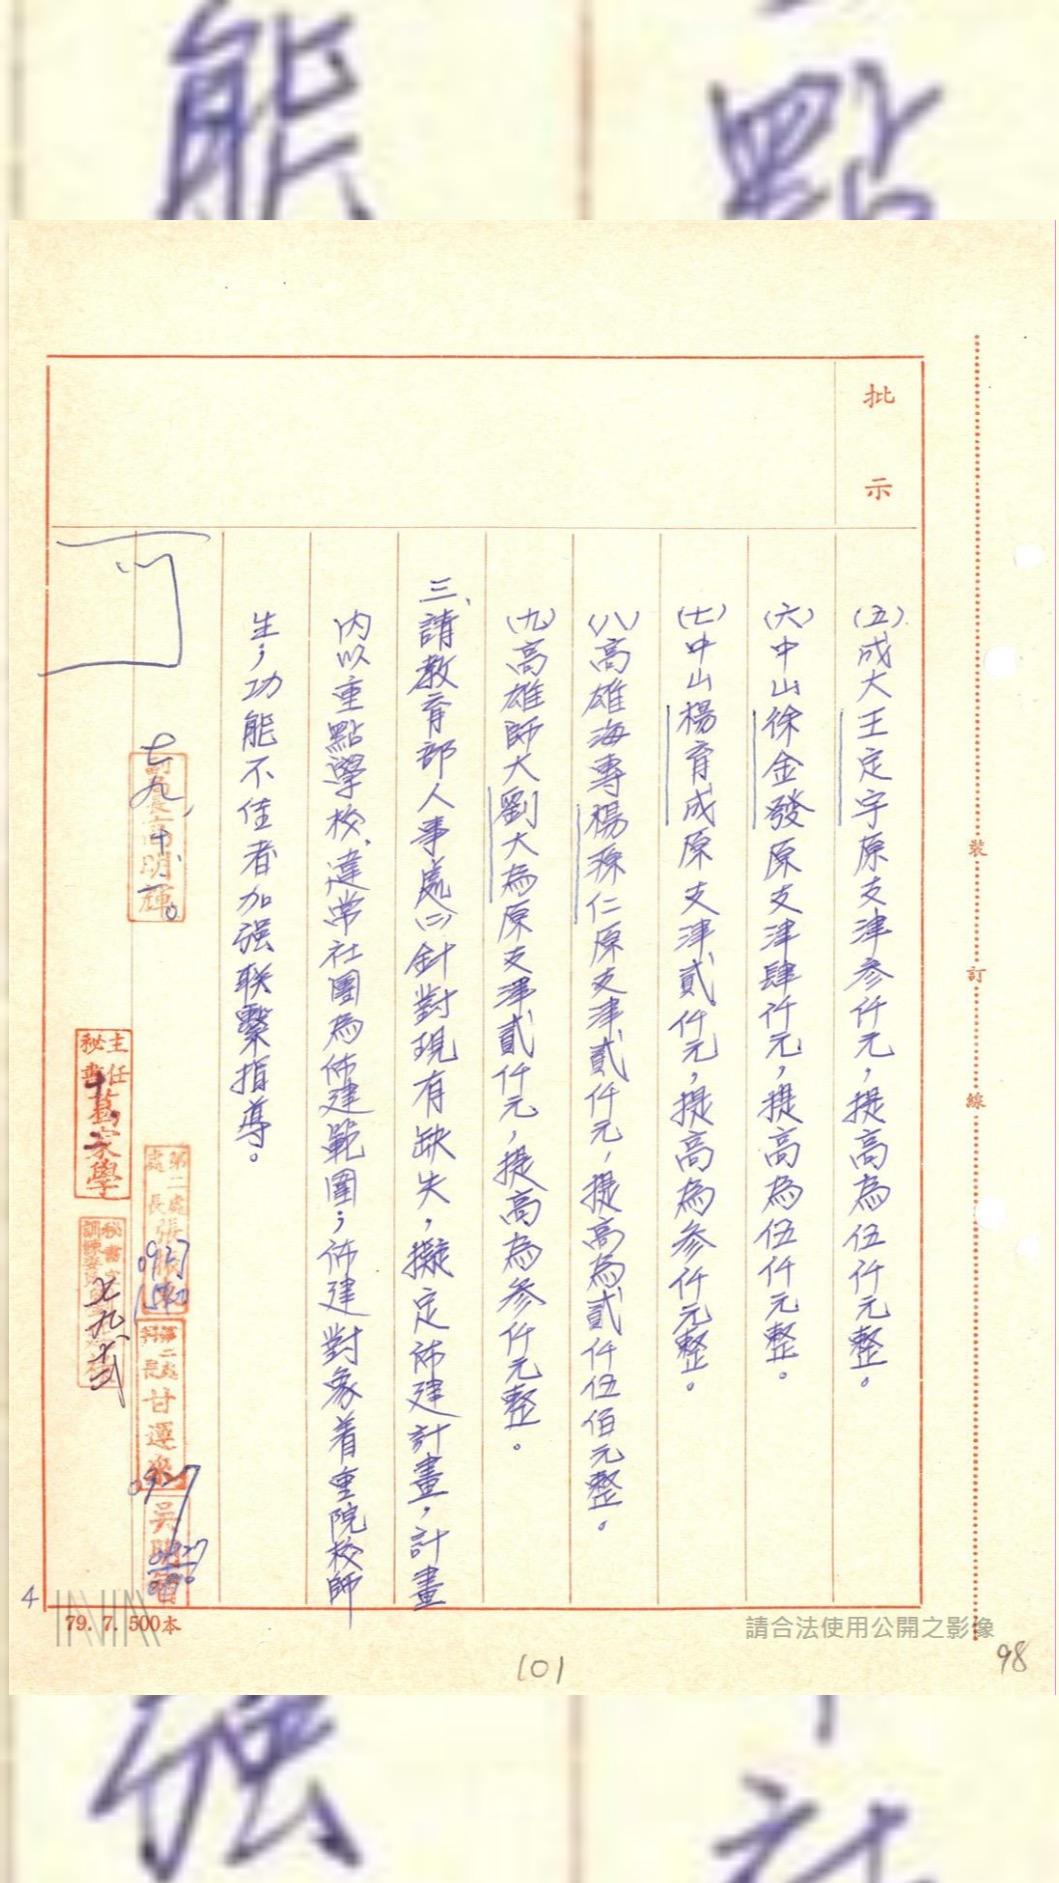 能
點
批示
(五)成大王定宇原支津參仟元，提高為伍仟元整。
(六)中山徐金發原支津肆仟元，提高為伍仟元整。
(七)中山楊育成原支津貳仟元，提高為參仟元整。
(八)高雄海專楊琛仁原支津貳仟元，提高為貳仟伍佰元整。
(九)高雄師大劉大為原支津貳仟元，提高為參仟元整。
三、請教育部人事處(二)針對現有缺失，擬定佈建計畫，計畫
內以重點學校、違常社團為佈建範圍；佈建對象着重院校師
生；功能不佳者加强联繫指導。
可
高明輝
第二處處長張
0927
1540
第二處科長甘
0927
吳明
0927
主任秘書
家學
秘書室
裝訂線
4
79. 7. 500本
請合法使用公開之影像
101
98
强